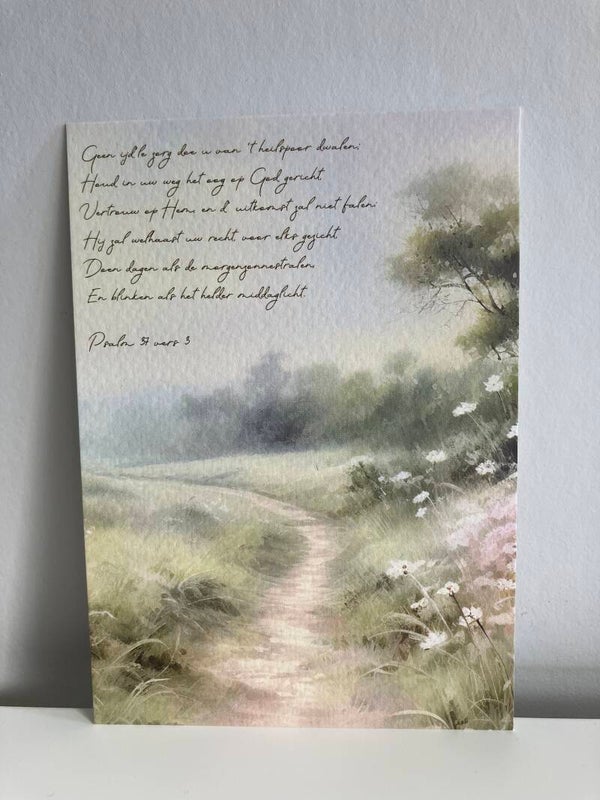 Geen ijd'le zorg doe u van 't heilspoor dwalen;
Houd in uw weg het oog op God gericht,
Vertrouw op Hem, en d' uitkomst zal niet falen:
Hij zal welhaast uw recht, voor elks gezicht
Doen dagen als de morgenzonnestralen,
En blinken als het helder middaglicht.
Psalm 37 vers 3